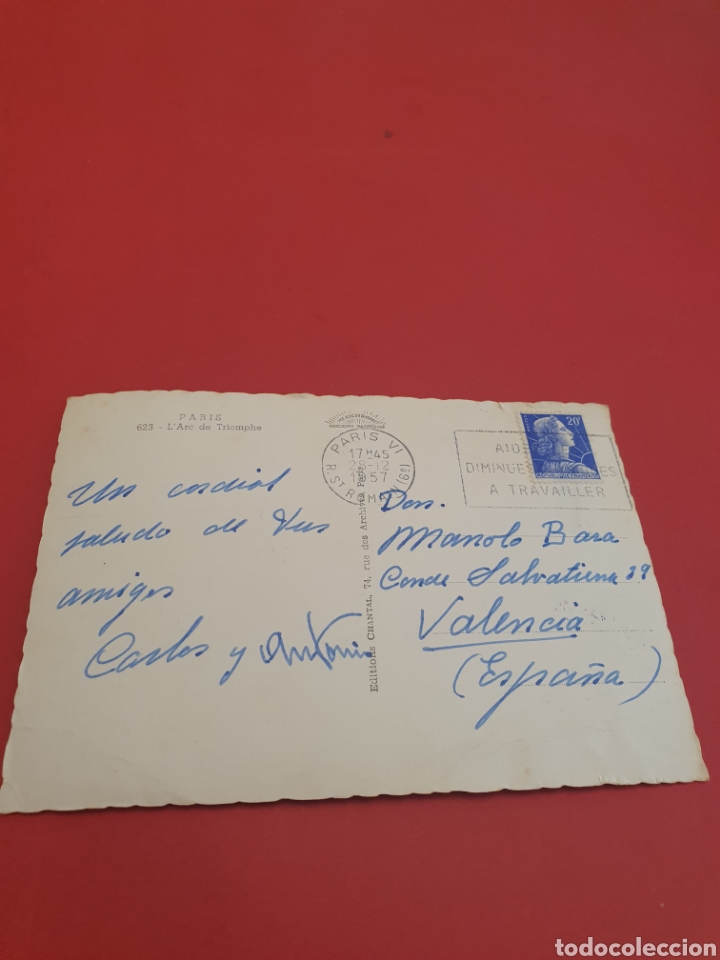 PARIS
623 - L'Arc de Triomphe
Un cordial
saludo de tus
amigos
Carlos y Antonio
Editions CHANTAL, 74, rue des Archives Paris
PARIS VI
17H45
-12
57
R. ST R
(6E)
20F
AID
DIMINUES ES
A TRAVAILLER
Don.
Manolo Bara
Conde Salvatierra 39
Valencia
(España)
todocoleccion